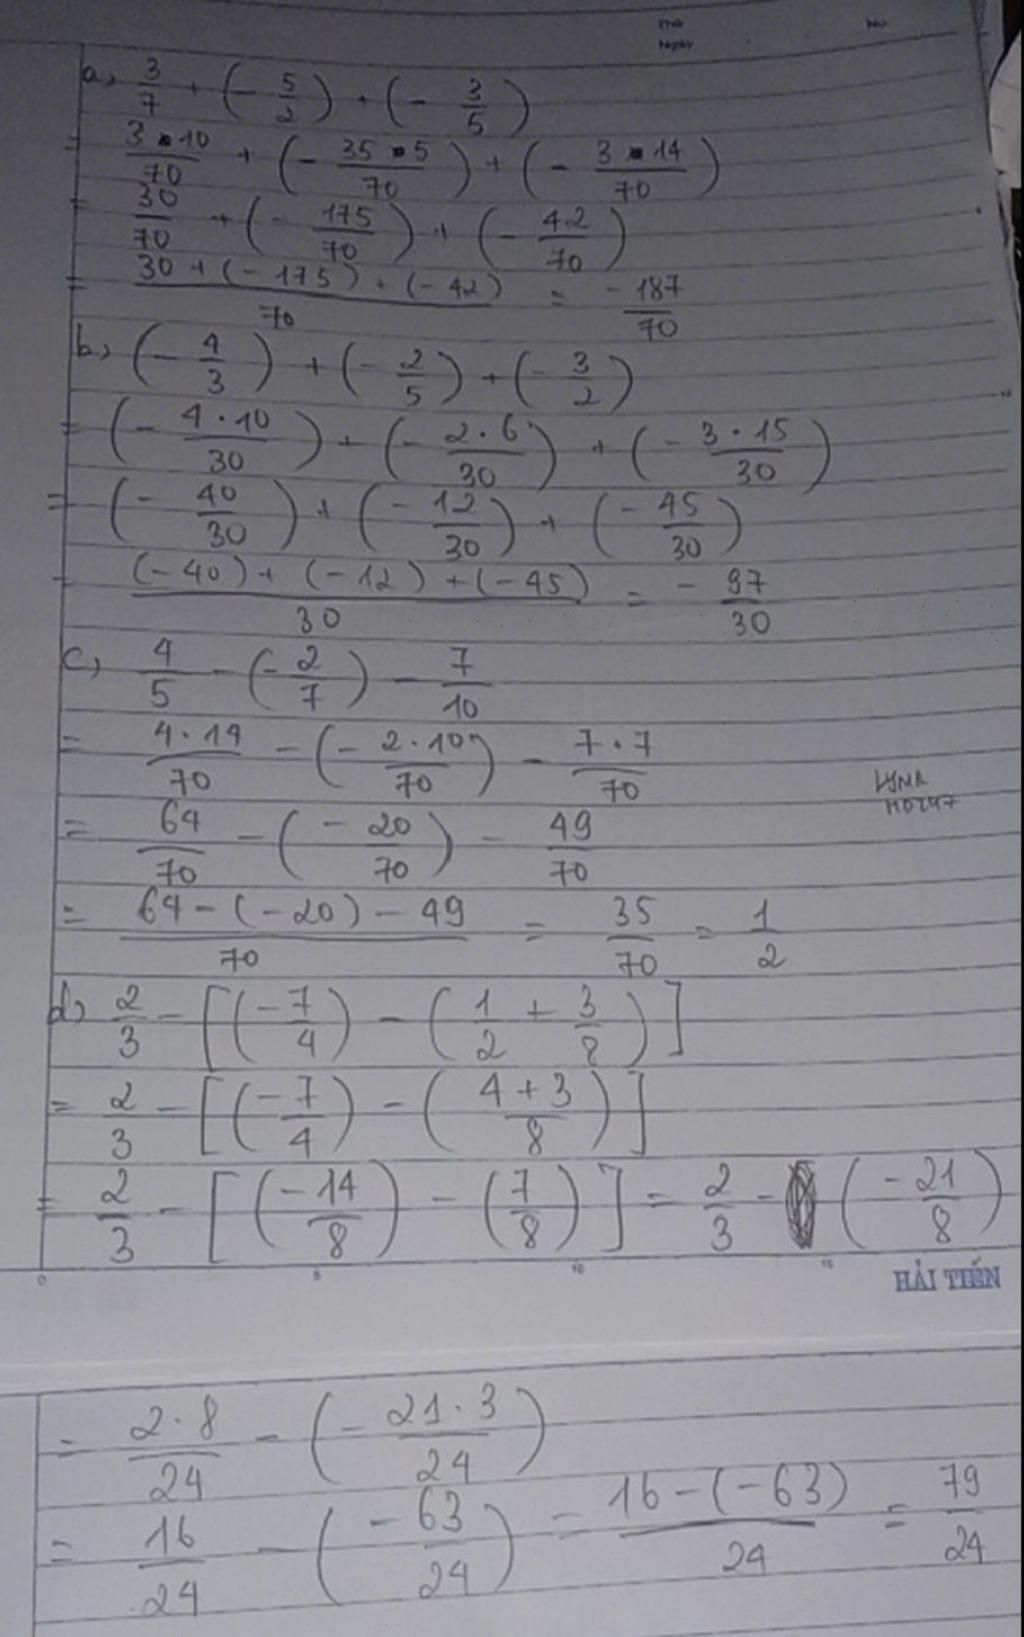 Thứ
Ngày
No
a, 3/7 + (- 5/2) + (- 3/5)
= 3 • 10/70 + (- 35 • 5/70) + (- 3 • 14/70)
= 30/70 + (- 175/70) + (- 42/70)
= 30 + (- 175) + (- 42)/70 = - 187/70
b, (- 4/3) + (- 2/5) + (- 3/2)
= (- 4 . 10/30) + (- 2 . 6/30) + (- 3 . 15/30)
= (- 40/30) + (- 12/30) + (- 45/30)
= (- 40) + (- 12) + (- 45)/30 = - 97/30
c, 4/5 - (- 2/7) - 7/10
= 4 . 14/70 - (- 2 . 10/70) - 7 . 7/70
= 64/70 - (- 20/70) - 49/70
= 64 - (- 20) - 49/70 = 35/70 = 1/2
d, 2/3 - [(-7/4) - (1/2 + 3/8)]
= 2/3 - [(-7/4) - (4 + 3/8)]
= 2/3 - [(-14/8) - (7/8)] = 2/3 - (-21/8)
0 5 10 15
HẢI TIẾN
= 2 . 8/24 - (- 21 . 3/24)
= 16/24 - (- 63/24) = 16 - (- 63)/24 = 79/24